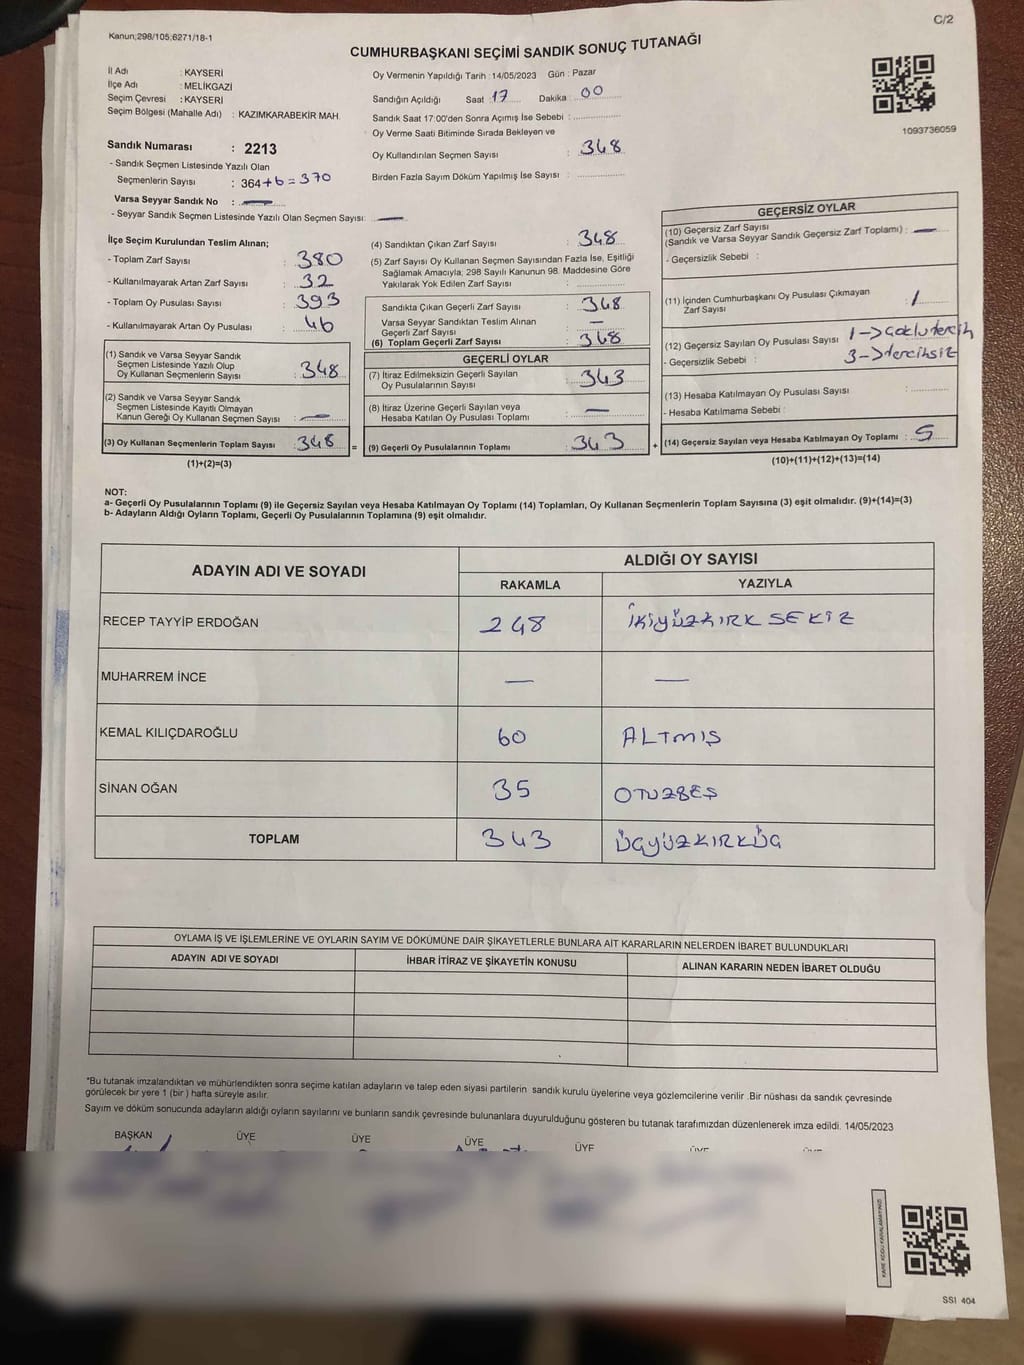 C/2
Kanun;298/105;6271/18-1
CUMHURBAŞKANI SEÇİMİ SANDIK SONUÇ TUTANAĞI
İl Adı : KAYSERİ
İlçe Adı : MELİKGAZİ
Seçim Çevresi : KAYSERİ
Seçim Bölgesi (Mahalle Adı) : KAZIMKARABEKİR MAH.
Sandık Numarası : 2213
- Sandık Seçmen Listesinde Yazılı Olan
Seçmenlerin Sayısı : 364+6=370
Varsa Seyyar Sandık No : —
- Seyyar Sandık Seçmen Listesinde Yazılı Olan Seçmen Sayısı: —
Oy Vermenin Yapıldığı Tarih :14/05/2023 Gün : Pazar
Sandığın Açıldığı Saat 17 Dakika 00
Sandık Saat 17:00'den Sonra Açımış İse Sebebi :
Oy Verme Saati Bitiminde Sırada Bekleyen ve
Oy Kullandırılan Seçmen Sayısı : 348
Birden Fazla Sayım Döküm Yapılmış İse Sayısı :
1093736059
İlçe Seçim Kurulundan Teslim Alınan;
- Toplam Zarf Sayısı : 380
- Kullanılmayarak Artan Zarf Sayısı : 32
- Toplam Oy Pusulası Sayısı : 393
- Kullanılmayarak Artan Oy Pusulası : 46
(1) Sandık ve Varsa Seyyar Sandık
Seçmen Listesinde Yazılı Olup
Oy Kullanan Seçmenlerin Sayısı : 348
(2) Sandık ve Varsa Seyyar Sandık
Seçmen Listesinde Kayıtlı Olmayan
Kanun Gereği Oy Kullanan Seçmen Sayısı : —
(3) Oy Kullanan Seçmenlerin Toplam Sayısı : 348 =
(1)+(2)=(3)
(4) Sandıktan Çıkan Zarf Sayısı : 348
(5) Zarf Sayısı Oy Kullanan Seçmen Sayısından Fazla İse, Eşitliği
Sağlamak Amacıyla; 298 Sayılı Kanunun 98. Maddesine Göre
Yakılarak Yok Edilen Zarf Sayısı :
Sandıkta Çıkan Geçerli Zarf Sayısı : 348
Varsa Seyyar Sandıktan Teslim Alınan
Geçerli Zarf Sayısı : —
(6) Toplam Geçerli Zarf Sayısı : 348
GEÇERLİ OYLAR
(7) İtiraz Edilmeksizin Geçerli Sayılan
Oy Pusulalarının Sayısı : 343
(8) İtiraz Üzerine Geçerli Sayılan veya
Hesaba Katılan Oy Pusulası Toplamı : —
(9) Geçerli Oy Pusulalarının Toplamı : 343 +
GEÇERSİZ OYLAR
(10) Geçersiz Zarf Sayısı
(Sandık ve Varsa Seyyar Sandık Geçersiz Zarf Toplamı) : —
- Geçersizlik Sebebi :
(11) İçinden Cumhurbaşkanı Oy Pusulası Çıkmayan
Zarf Sayısı : 1
(12) Geçersiz Sayılan Oy Pusulası Sayısı : 1->Çoklu tercih
- Geçersizlik Sebebi : 3->tercihsiz
(13) Hesaba Katılmayan Oy Pusulası Sayısı :
- Hesaba Katılmama Sebebi :
(14) Geçersiz Sayılan veya Hesaba Katılmayan Oy Toplamı : 5
(10)+(11)+(12)+(13)=(14)
NOT:
a- Geçerli Oy Pusulalarının Toplamı (9) ile Geçersiz Sayılan veya Hesaba Katılmayan Oy Toplamı (14) Toplamları, Oy Kullanan Seçmenlerin Toplam Sayısına (3) eşit olmalıdır. (9)+(14)=(3)
b- Adayların Aldığı Oyların Toplamı, Geçerli Oy Pusulalarının Toplamına (9) eşit olmalıdır.
ADAYIN ADI VE SOYADI
ALDIĞI OY SAYISI
RAKAMLA YAZIYLA
RECEP TAYYİP ERDOĞAN 248 İKİYÜZKIRK SEKİZ
MUHARREM İNCE — —
KEMAL KILIÇDAROĞLU 60 ALTMIŞ
SİNAN OĞAN 35 OTUZBEŞ
TOPLAM 343 ÜÇYÜZKIRKÜÇ
OYLAMA İŞ VE İŞLEMLERİNE VE OYLARIN SAYIM VE DÖKÜMÜNE DAİR ŞİKAYETLERLE BUNLARA AİT KARARLARIN NELERDEN İBARET BULUNDUKLARI
ADAYIN ADI VE SOYADI İHBAR İTİRAZ VE ŞİKAYETİN KONUSU ALINAN KARARIN NEDEN İBARET OLDUĞU
*Bu tutanak imzalandıktan ve mühürlendikten sonra seçime katılan adayların ve talep eden siyasi partilerin sandık kurulu üyelerine veya gözlemcilerine verilir .Bir nüshası da sandık çevresinde
görülecek bir yere 1 (bir ) hafta süreyle asılır.
Sayım ve döküm sonucunda adayların aldığı oyların sayılarını ve bunların sandık çevresinde bulunanlara duyurulduğunu gösteren bu tutanak tarafımızdan düzenlenerek imza edildi. 14/05/2023
BAŞKAN ÜYE ÜYE ÜYE ÜYE
KARE KODU KARALAMAYINIZ!
SSI 404